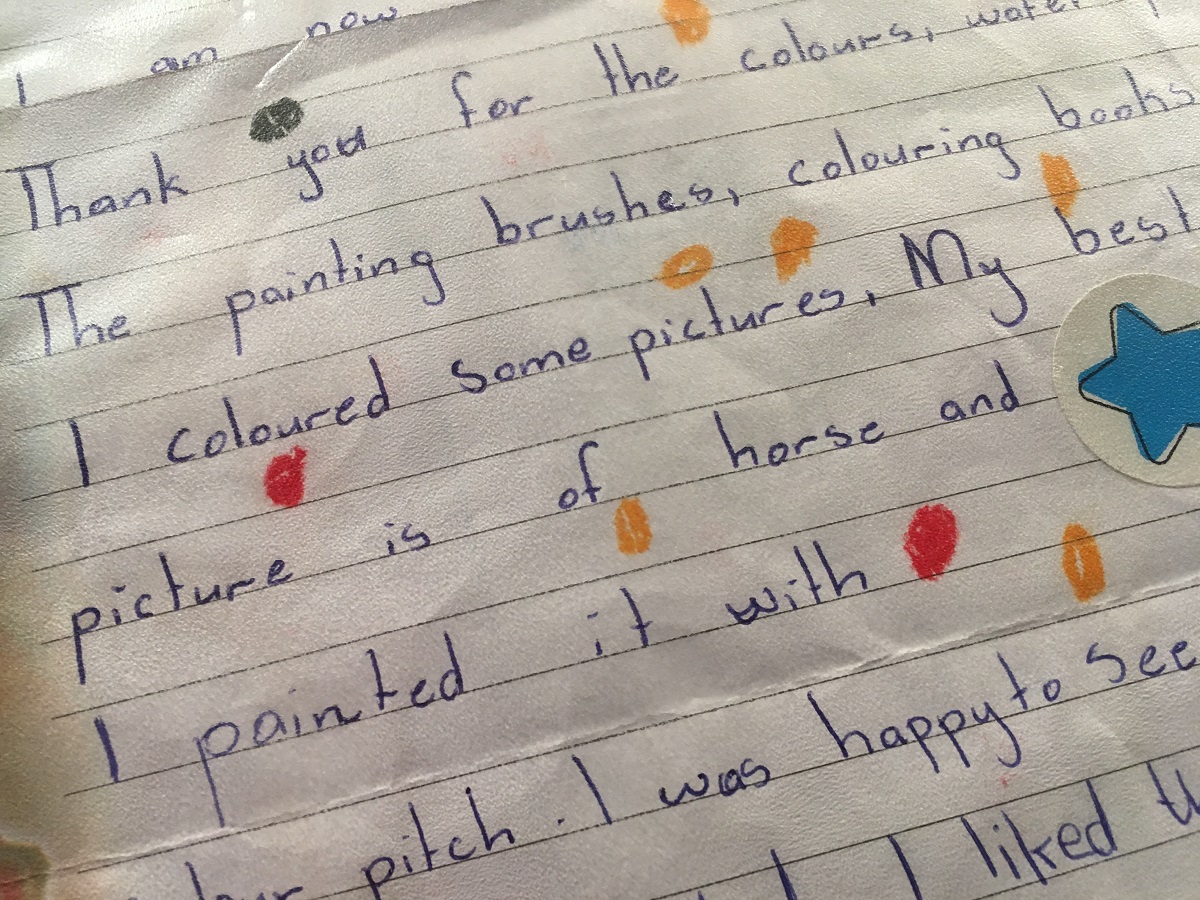 I am now
Thank you for the colours, water
The painting brushes, colouring books
I coloured some pictures, My best
picture is of horse and
I painted it with
pitch. I was happy to see
I liked